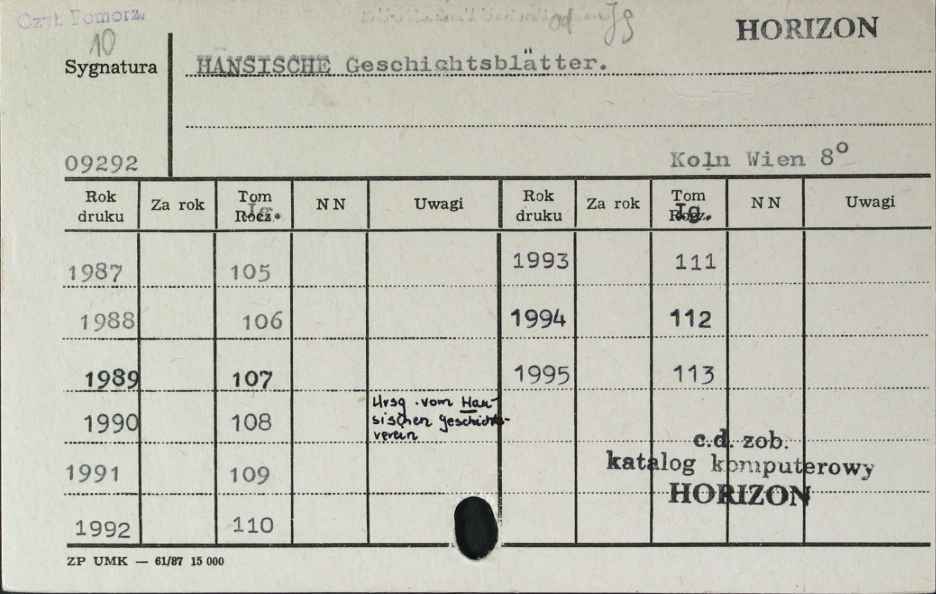 Czyt. Pomorz.
10
od Jg
HORIZON
Sygnatura
HANSISCHE Geschichtsblätter.
09292
Koln Wien 8°
Rok druku Za rok Tom Rocz. Jg. NN Uwagi Rok druku Za rok Tom Rocz. Jg. NN Uwagi
1987 105 1993 111
1988 106 1994 112
1989 107 1995 113
1990 108
Hrsg. vom Han-
sischen Geschichts-
verein
1991 109
1992 110
c.d. zob.
katalog komputerowy
HORIZON
ZP UMK — 61/87 15 000